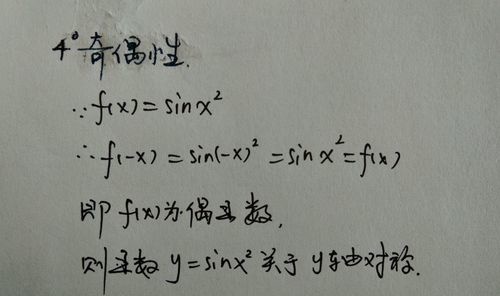 4° 奇偶性.
∵ f(x) = sin x²
∴ f(-x) = sin(-x)² = sin x² = f(x)
即 f(x) 为偶函数.
则函数 y = sin x² 关于 y 轴对称.